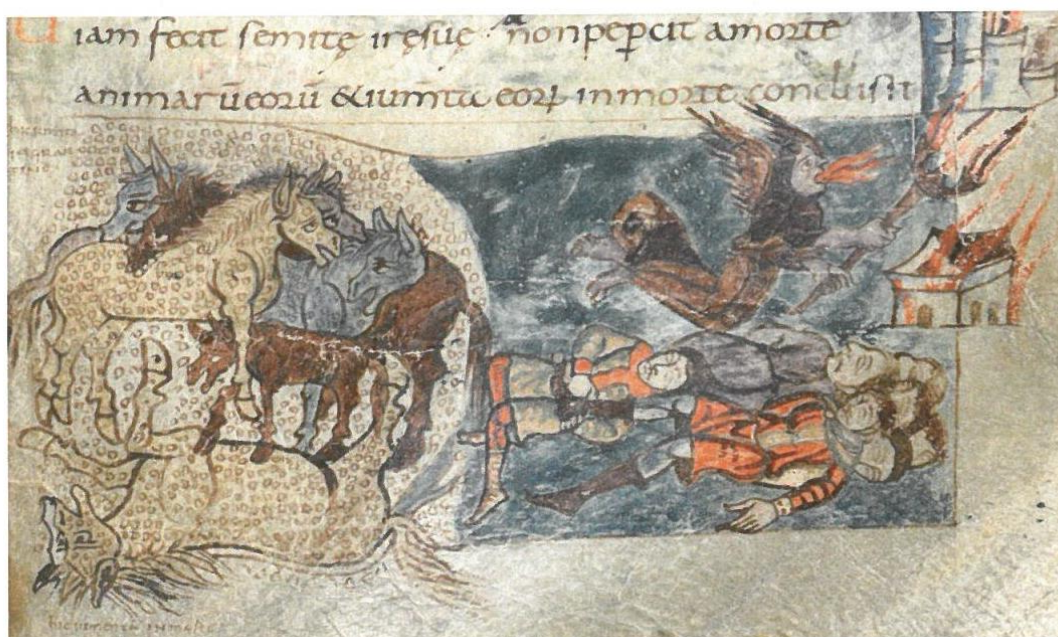 iam fecit semitę irę suę · non pepcit a morte
animar ū eorū & iumta eorꝝ in morte conclusit